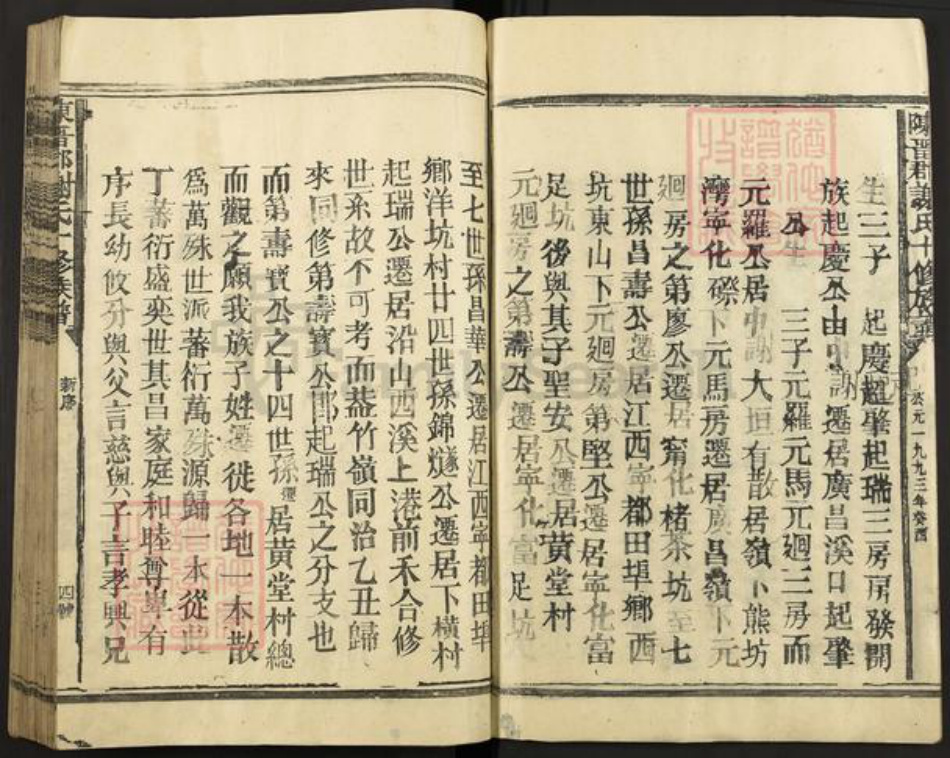 陳晉郡謝氏十修族譜
公元一九九三年癸酉
生三子 起慶起肇起瑞三房房發開
族起慶公由中謝遷居廣昌溪口起肇
公生 三子元羅元馬元廻三房而
元羅公居中謝大垣有散居嶺下熊坊
灣寧化磜下元馬房遷居廣昌嶺下元
廻房之第廖公遷居甯化楮茶坑至七
世孫昌壽公遷居江西寧都田埠鄉西
坑東山下元廻房第堅公遷居寧化富
足坑後與其子聖安公遷居黃堂村
元廻房之第壽公遷居寧化富足坑
至七世孫昌華公遷居江西寧都田埠
鄉洋坑村廿四世孫錦燧公遷居下橫村
起瑞公遷居沿山西溪上港前禾合修
世系故不可考而葢竹嶺同治乙丑歸
來同修第壽寶公郎起瑞公之分支也
而第壽寶公之十四世孫遷居黃堂村總
而觀之願我族子姓遷徙各地一本散
為萬殊世派蕃衍萬殊源歸一本從此
丁蕃衍盛奕世其昌家庭和睦尊卑有
序長幼攸分與父言慈與子言孝與兄
東晉郡謝氏十修族譜
新序
四號